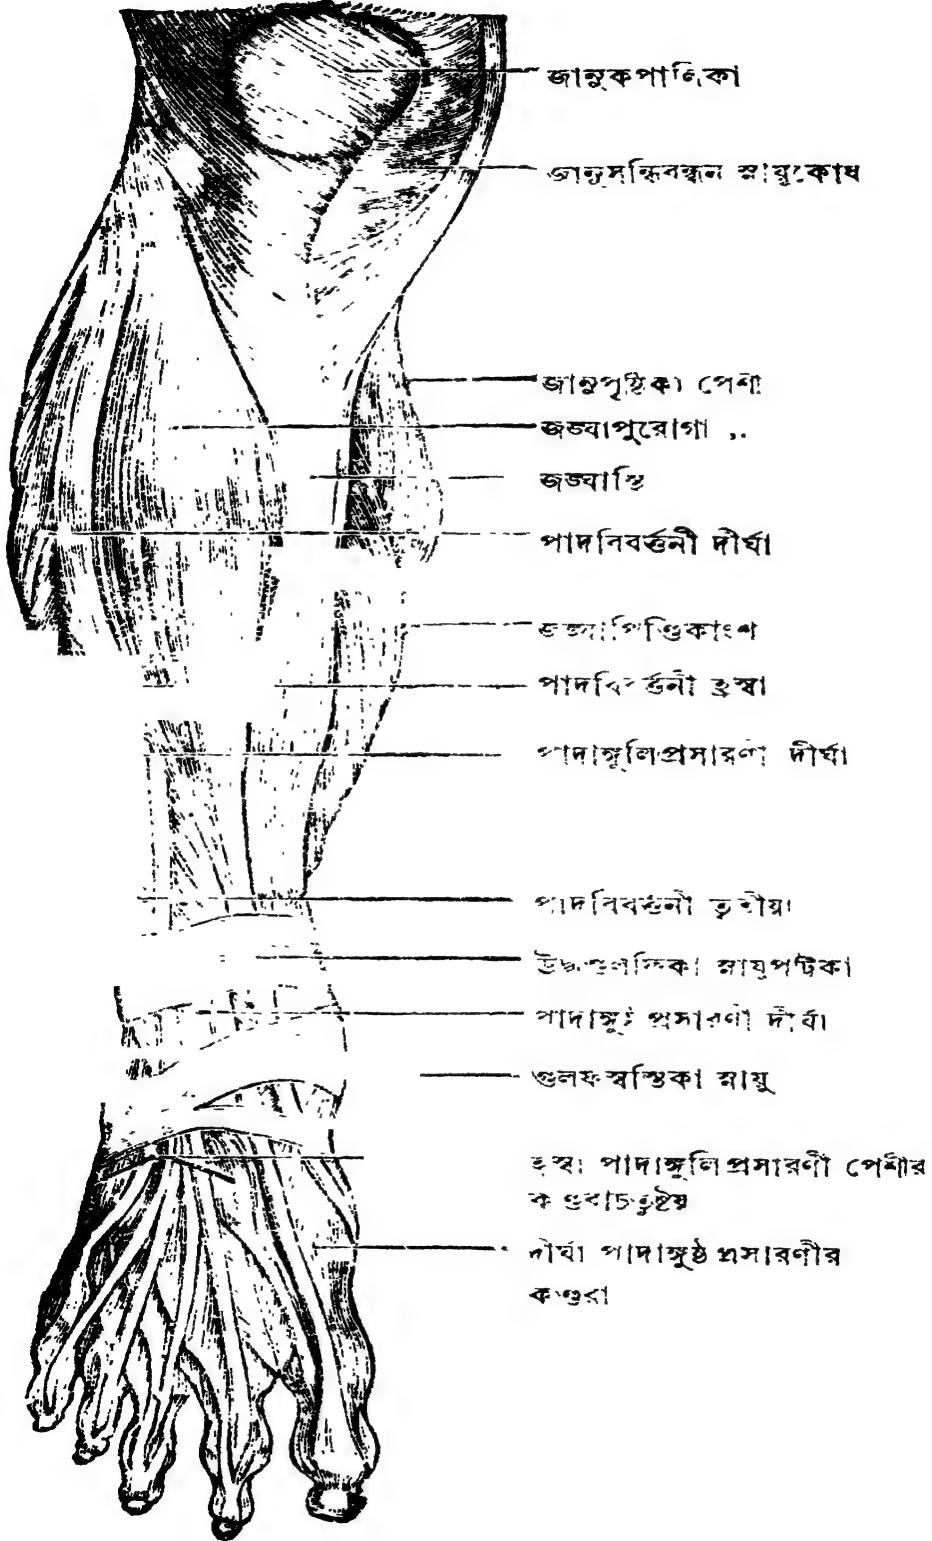 জানুকপালিকা
জানুসন্ধিবন্ধন স্নায়ুকোষ
জানুপৃষ্টিকা পেশী
জঙ্ঘাপুরোগা ,,
জঙ্ঘাস্থি
পাদবিবর্ত্তনী দীর্ঘা
জঙ্ঘাপিণ্ডিকাংশ
পাদবিবর্ত্তনী হ্রস্বা
পাদাঙ্গুলিপ্রসারণী দীর্ঘা
পাদবিবর্ত্তনী তৃতীয়া
স্নায়ুপট্টিকা
পাদাঙ্গুষ্ঠ প্রসারণী দীর্ঘা
গুলফস্বস্তিকা স্নায়ু
হ্রস্বা পাদাঙ্গুলিপ্রসারণী পেশীর
কণ্ডরাচতুষ্টয়
দীর্ঘা পাদাঙ্গুষ্ঠপ্রসারণীর
কণ্ডরা